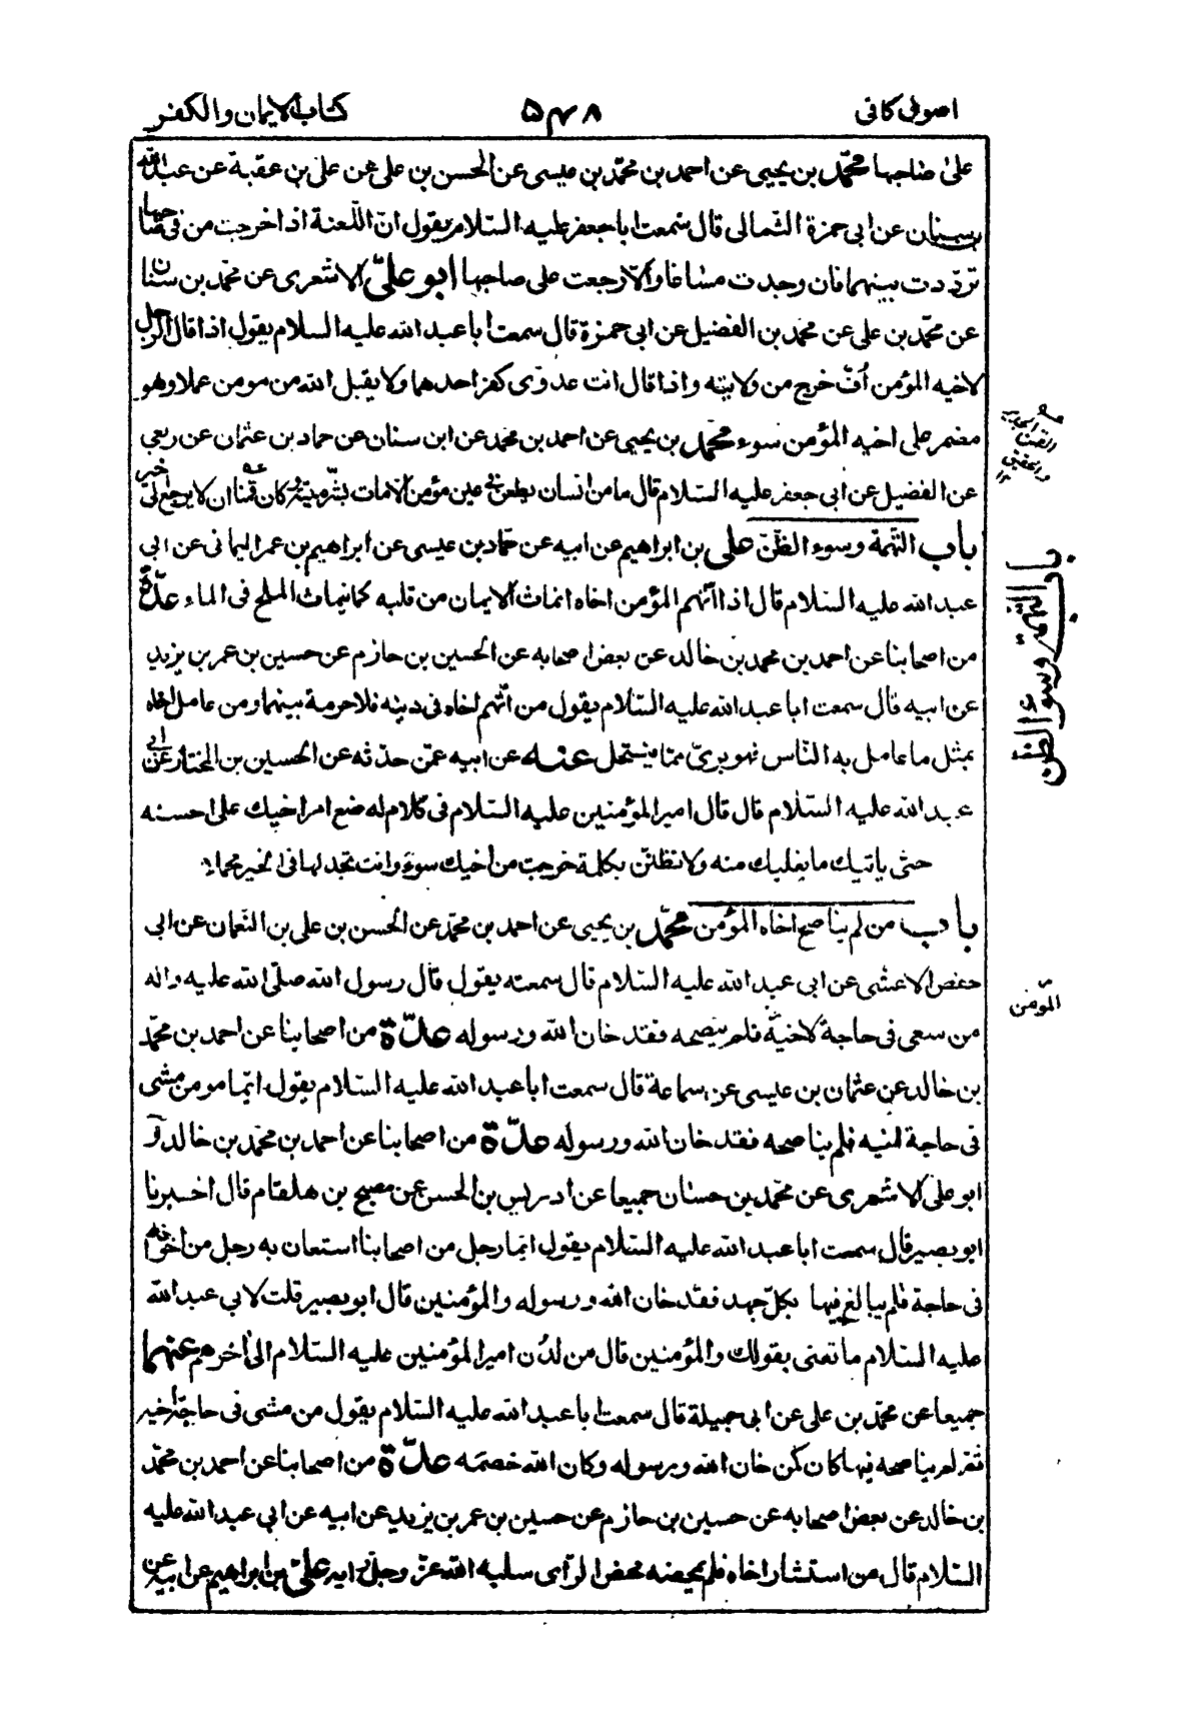 اصول كافى
۵۴۸
كتاب الايمان والكفر
على صاحبها محمّد بن يحيى عن احمد بن محمّد بن عيسى عن الحسن بن على عن على بن عقبة عن عبدالله
بن سنان عن ابى حمزة الثمالى قال سمعت اباجعفر عليه السّلام يقول انّ اللّعنة اذا خرجت من فى صاحبها
تردّدت بينهما فان وجدت مساغا والّا رجعت على صاحبها ابو علىّ الاشعرى عن محمّد بن سنان
عن محمّد بن على عن محمّد بن الفضيل عن ابى حمزة قال سمعت اباعبد الله عليه السلام يقول اذا قال الرجل
لاخيه المؤمن اُفّ خرج من ولايته واذا قال انت عدوّى كفر احدهما ولا يقبل الله من مومن عملا وهو
مضمر على اخيه المؤمن سوء محمّد بن يحيى عن احمد بن محمّد عن ابن سنان عن حماد بن عثمان عن ربعى
عن الفضيل عن ابى جعفر عليه السّلام قال ما من انسان يطعن فى عين مؤمن الّا مات بشرّ ميتة وكان قمنا ان لا يرجع الى خير
باب التّهمة وسوء الظّنّ على بن ابراهيم عن ابيه عن حمّاد بن عيسى عن ابراهيم بن عمر اليمانى عن ابى
عبد الله عليه السّلام قال اذا اتّهم المؤمن اخاه انماث الايمان من قلبه كما ينماث الملح فى الماء عدّة
من اصحابنا عن احمد بن محمد بن خالد عن بعض اصحابه عن الحسين بن حازم عن حسين بن عمر بن يزيد
عن ابيه قال سمعت ابا عبد الله عليه السّلام يقول من اتّهم اخاه فى دينه فلا حرمة بينهما ومن عامل اخاه
بمثل ما عامل به النّاس فهو برىّ ممّا ينتحل عنه عن ابيه عمّن حدّثه عن الحسين بن المختار عن ابى
عبد الله عليه السّلام قال قال امير المؤمنين عليه السّلام فى كلام له ضع امر اخيك على احسنه
حتى ياتيك ما يغلبك منه ولا تظنّن بكلمة خرجت من اخيك سوء وانت تجد لها فى الخير محملا
باب من لم يناصح اخاه المؤمن محمّد بن يحيى عن احمد بن محمّد عن الحسن بن على بن النّعمان عن ابى
حفص الاعشى عن ابى عبد الله عليه السّلام قال سمعته يقول قال رسول الله صلّى الله عليه واله
من سعى فى حاجة لاخيه فلم ينصحه فقد خان الله ورسوله عدّة من اصحابنا عن احمد بن محمّد
بن خالد عن عثمان بن عيسى عن سماعة قال سمعت اباعبد الله عليه السّلام يقول ايّما مومن مشى
فى حاجة اخيه فلم يناصحه فقد خان الله ورسوله عدّة من اصحابنا عن احمد بن محمّد بن خالد و
ابو على الاشعرى عن محمّد بن حسّان جميعا عن ادريس بن الحسن عن مصبح بن هلقام قال اخبرنا
ابو بصير قال سمعت اباعبد الله عليه السّلام يقول ايّما رجل من اصحابنا استعان به رجل من اخوانه
فى حاجة فلم يبالغ فيها بكلّ جهد فقد خان الله ورسوله والمؤمنين قال ابو بصير قلت لابى عبد الله
عليه السّلام ما تعنى بقولك والمؤمنين قال من لدُن امير المؤمنين عليه السّلام الى آخرهم عنهما
جميعا عن محمّد بن على عن ابى جميلة قال سمعت اباعبد الله عليه السّلام يقول من مشى فى حاجة اخيه
ثمّ لم يناصحه فيها كان كمن خان الله ورسوله وكان الله خصمه عدّة من اصحابنا عن احمد بن محمّد
بن خالد عن بعض اصحابه عن حسين بن حازم عن حسين بن عمر بن يزيد عن ابيه عن ابى عبد الله عليه
السّلام قال من استشار اخاه فلم يمحضه محض الرّاى سلبه الله عزّ وجلّ رايه علىّ بن ابراهيم عن ابيه عن
باب التهمة وسوء الظن
المؤمن